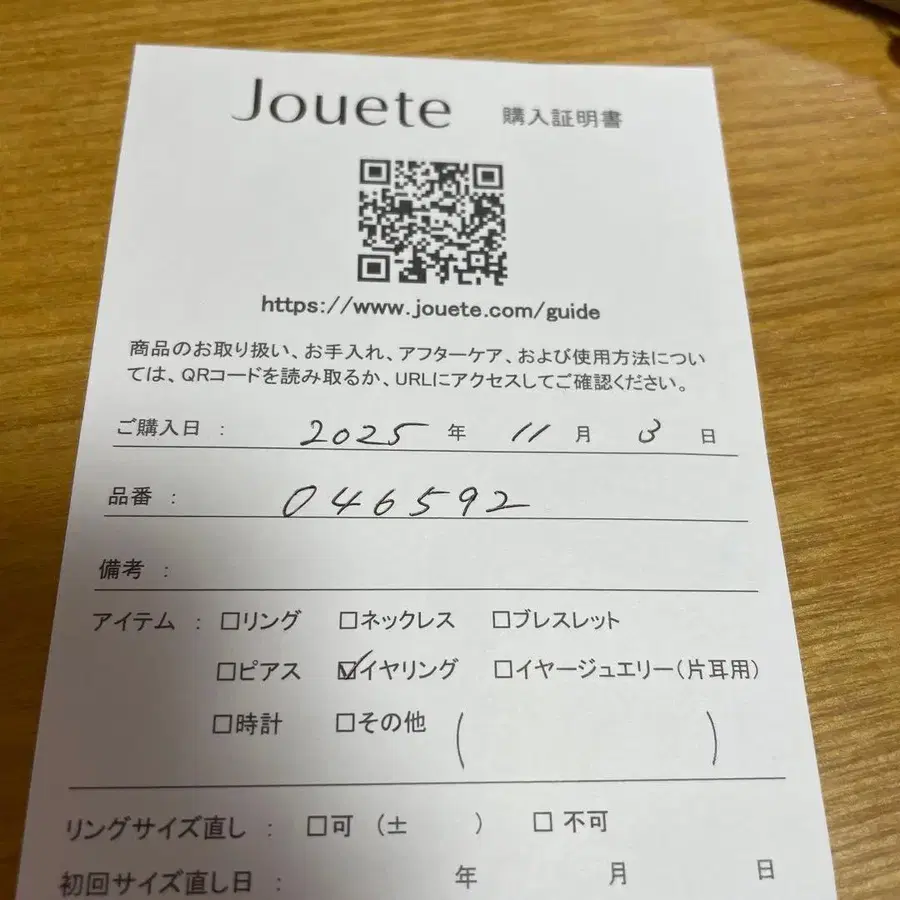 Jouete 購入証明書
https://www.jouete.com/guide
商品のお取り扱い、お手入れ、アフターケア、および使用方法につい
ては、QRコードを読み取るか、URLにアクセスしてご確認ください。
ご購入日 : 2025 年 11 月 3 日
品番 : 046592
備考 :
アイテム : □リング □ネックレス □ブレスレット
□ピアス ☑イヤリング □イヤージュエリー(片耳用)
□時計 □その他 ( )
リングサイズ直し : □可 (± ) □ 不可
初回サイズ直し日 : 年 月 日